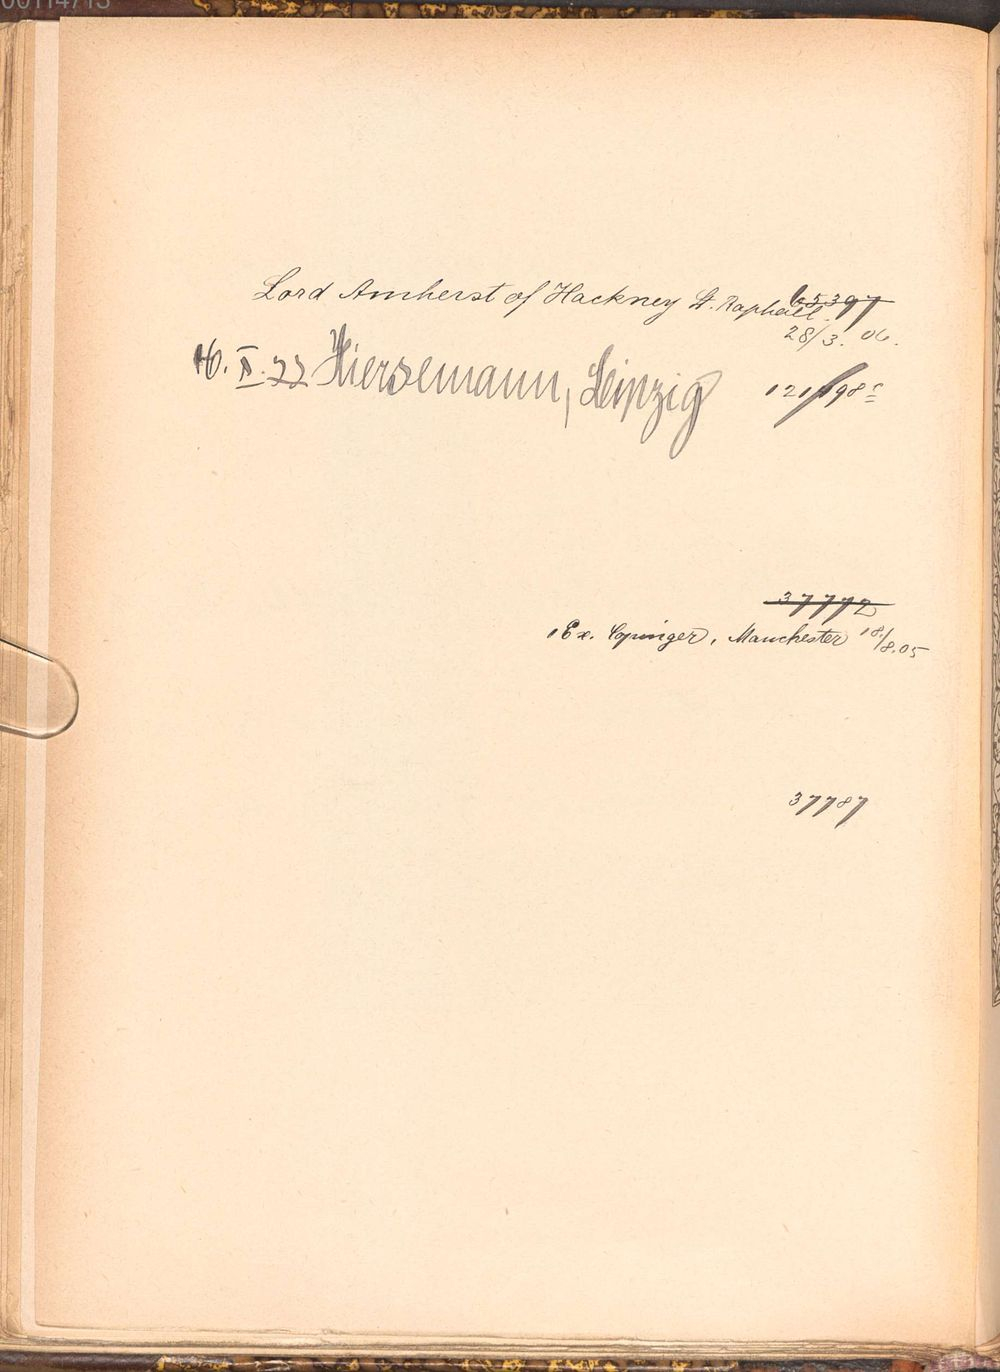 00114715
65397
Lord Amherst of Hackney St. Raphaël.
28/3. 06.
16. X. 22 Hiersemann, Leipzig
37772
1 Ex. Copinger, Manchester 18./8.05
37787